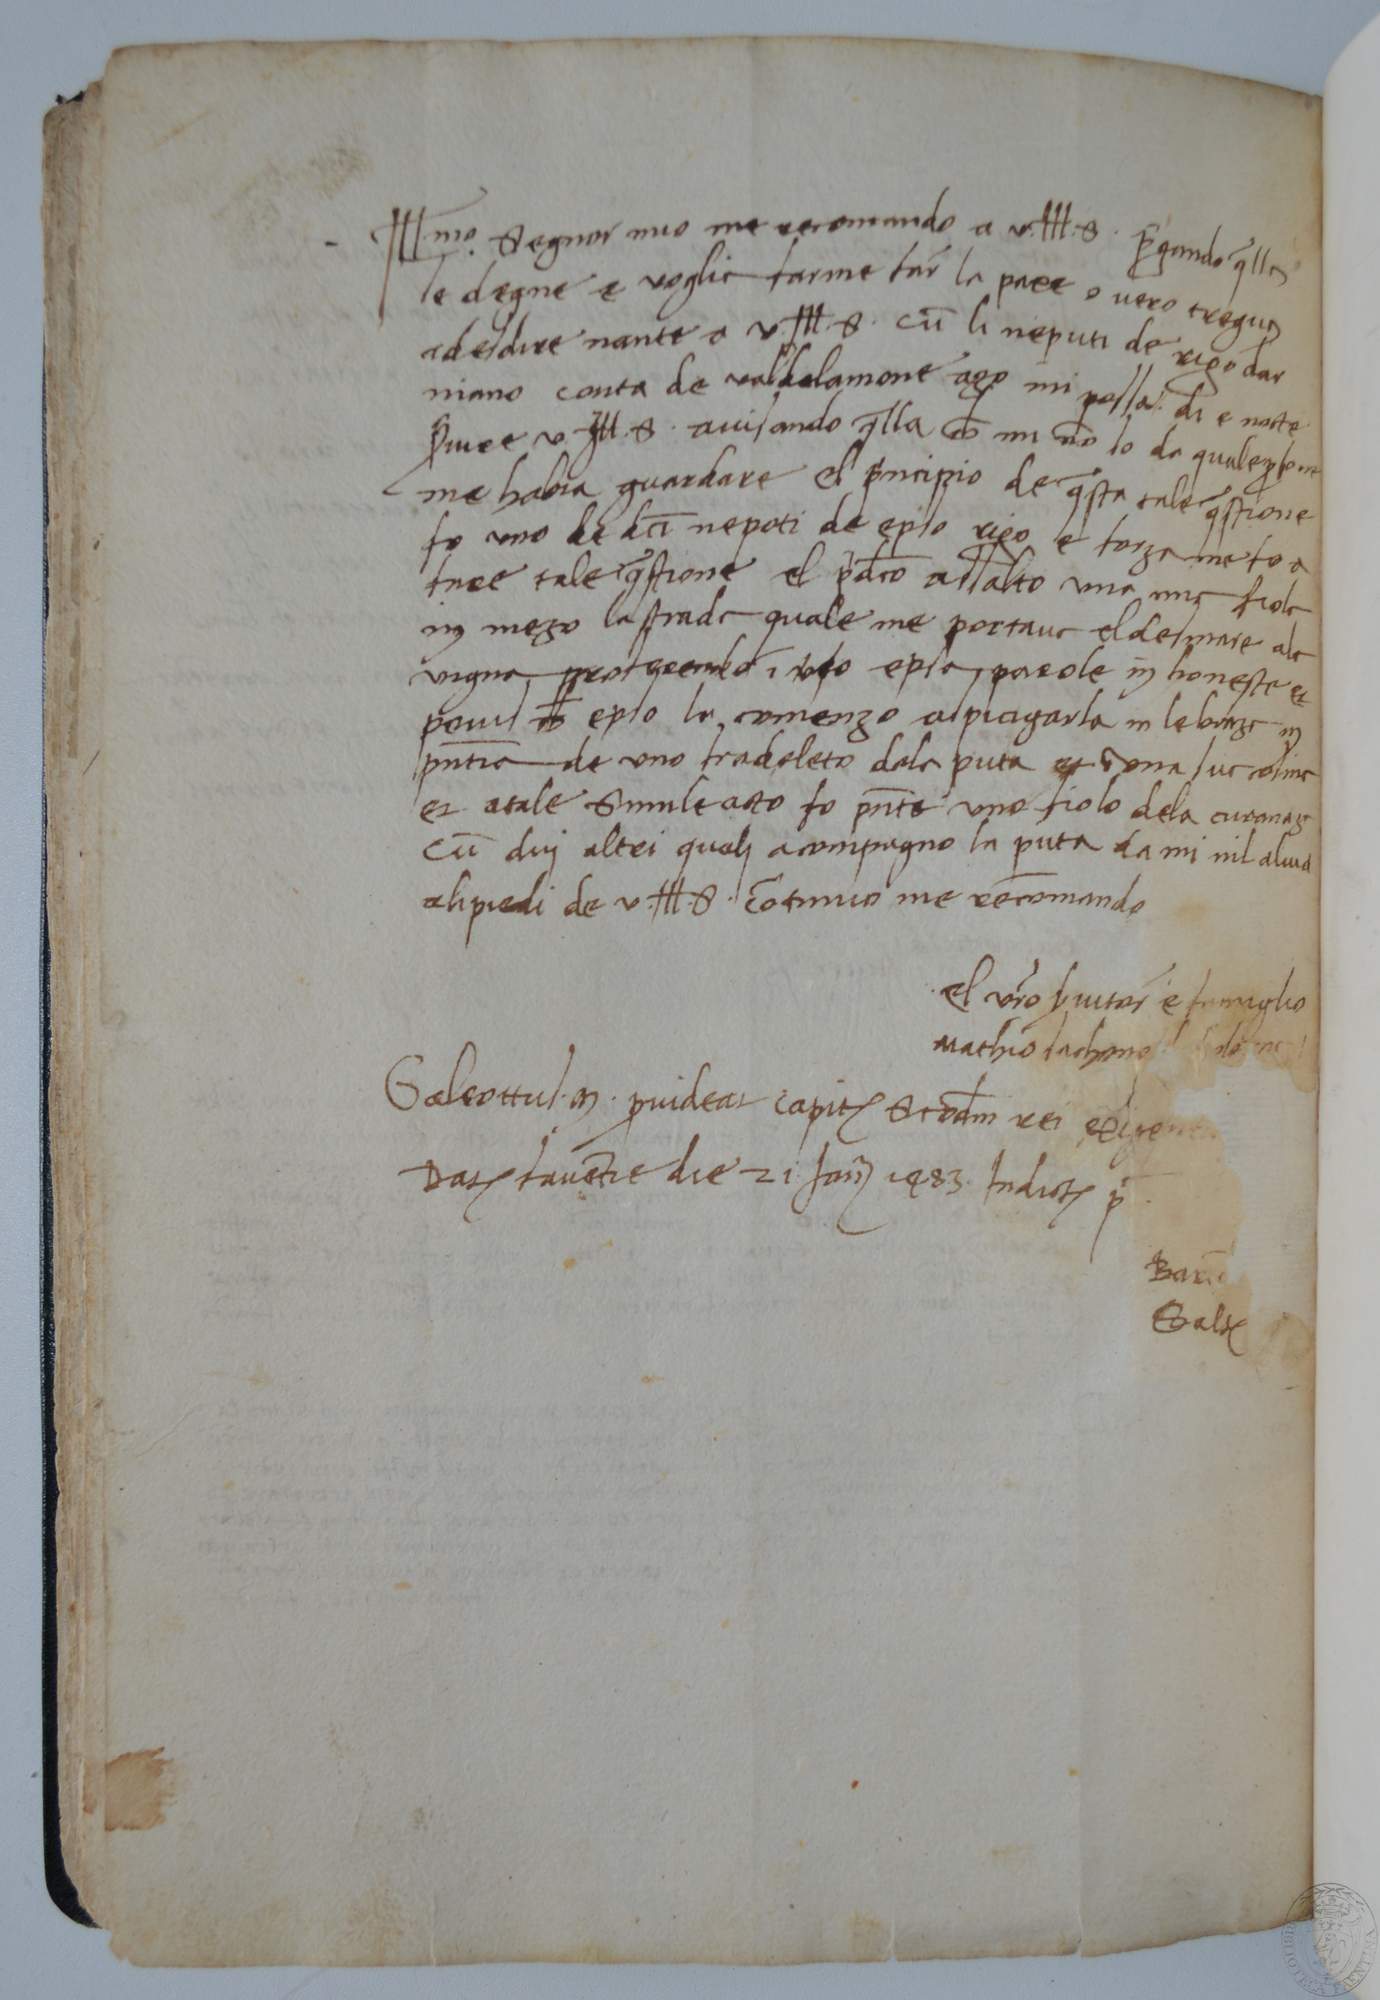 Illmo. Segnor mio me recomando a v. Ill. S. p̄gando q̄lla
se degne e voglia farme far̄ la pace o vero tregua
adesdire nante a v. Ill. S. cū li neputi de rigo dar
niano conta de valdelamone azo mi possa di e nocte
s̄vire v. Ill. S. avisando q̄lla ch̄ mi nō so da quale p̱sone
me habia guardare el p̄ncipio de q̄sta tale q̄stione
fo uno de dc̄ti nepoti de epso rigo e forzame fo a
fare tale q̄stione el p̄dc̄o assalto una mia fiola
in mezo la strada quale me portava el desinare ala
vigna epsa parole in honeste et
epso la comenzo a spicigarla in le braze in
p̄ntia de uno fradeleto dala puta et una sua
et atale Simile acto fo p̄nte uno fiolo dela
cū duj altri quali acompagno la puta da mi nil aliud
ali piedi de v. Ill. S. cōtinuo me recomando
el vr̄o s̄vitor e famiglio
Mathio
Galeottus. M. p̱videat capit. Scd̄m rei exigent
Dat. Favētie die 21 Jan̄ 1483. Indict. p
Bar
Galt.